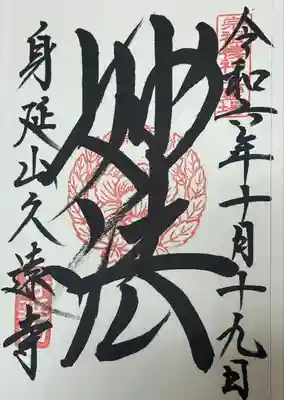 令和六年十月十九日
妙法
身延山久遠寺